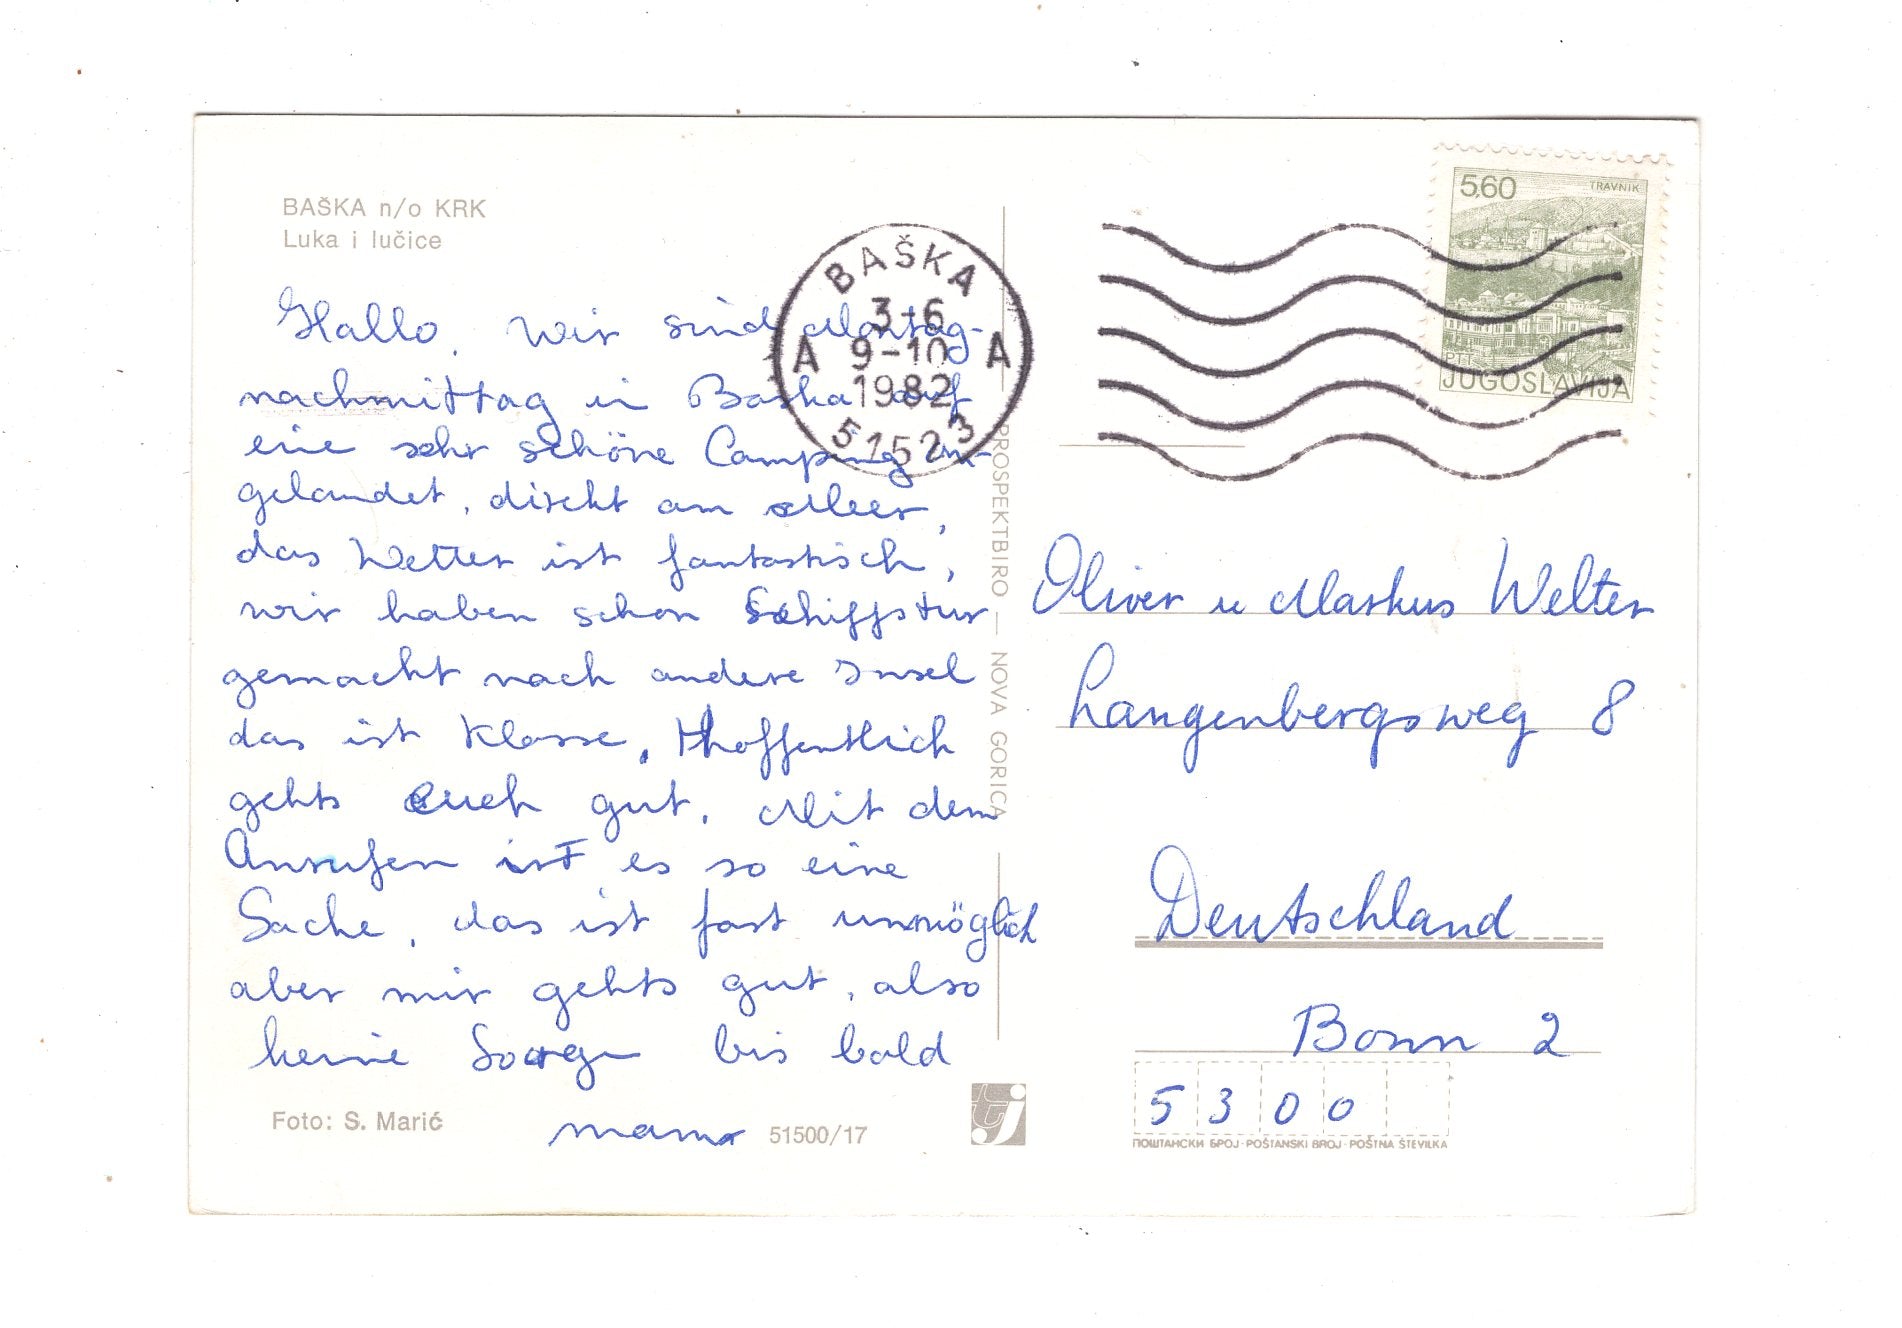 BAŠKA n/o KRK
Luka i lučice
Hallo. Wir sind Montag-
nachmittag in Baska auf
eine sehr schöne Camping an-
gelandet, direkt am Meer,
das Wetter ist fantastisch,
wir haben schon Schiffstur
gemacht nach andere Insel
das ist Klasse, Hhoffentlich
gehts euch gut. Mit dem
Anrufen ist es so eine
Sache, das ist fast unmöglich
aber mir gehts gut, also
keine Sorge bis bald
mama
Foto: S. Marić
51500/17
PROSPEKTBIRO — NOVA GORICA
tj
BAŠKA
3-6
A 9-10 A
1982
51523
5,60
TRAVNIK
PTT
JUGOSLAVIJA
Oliver u Markus Welter
Langenbergsweg 8
Deutschland
Bonn 2
5300
ПОШТАНСКИ БРОЈ · POŠTANSKI BROJ · POŠTNA ŠTEVILKA